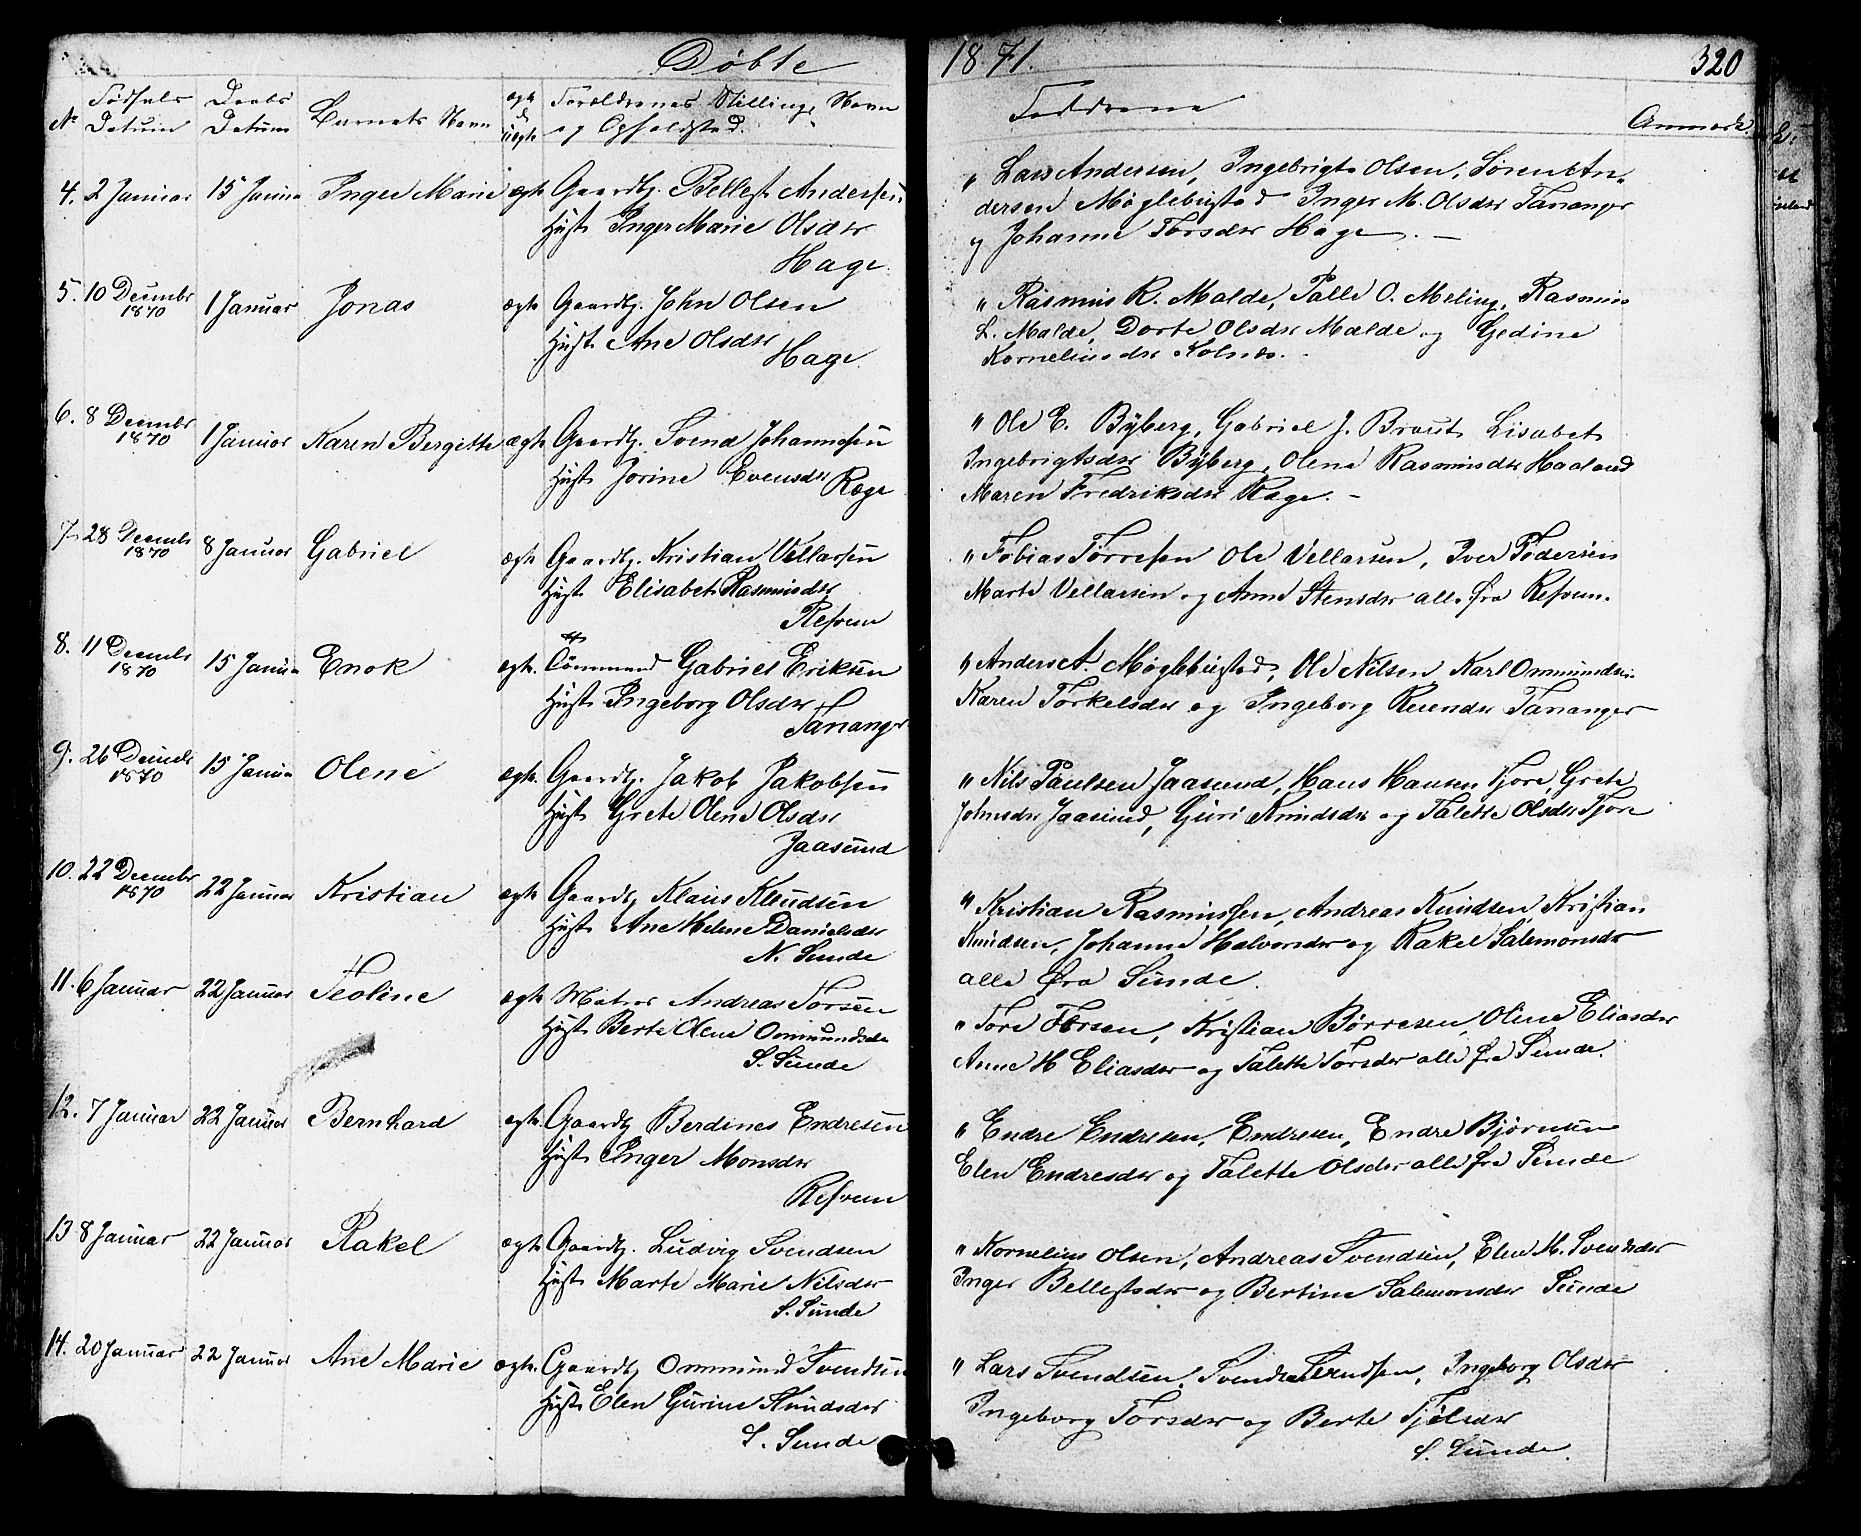 Döbte
1871.
320
No Födsels Datum Daabs Datum Barnets Navn ægte Uægte Foræld­renes Stilling, Navn og Opholdsted.
Fadderne
Anmærk.
4. 2 Januar 15 Janua Inger Marie ægte Gaardbr. Bellest Andersen
Hustr Inger Marie Olsdtr
Hage
" Lars Andersen, Ingebrigt Olsen, Sören An-
dersen Møglebustad Inger M. Olsdtr Tananger
og Johanne Torsdtr Hage. —
5. 10 Decembr 1870 1 Januar Jonas ægte Gaardbr. John Olsen
Hustr Ane Olsdtr
Hage.
" Rasmus R. Malde, Palle O. Meling, Rasmus
L. Malde, Dorte Olsdtr Malde og Gedine
Korneliusdtr Kolnes.
6. 8 Decembr 1870 1 Januar Karen Bergette ægte Gaardbr. Svend Johannesen
Hustr Jorine Evensdtr
Røge
" Ole E. Byberg, Gabriel J. Braut Lisabet
Ingebrigtsdtr Byberg, Olene Rasmusdtr Haaland
Maren Fredriksdtr Røge. —
7. 28 Decembr 1870 8 Januar Gabriel ægte Gaardbr. Kristian Vellarsen
Hustr Elisabet Rasmusdtr
Refsum
" Tobias Törresen Ole Vellarsen, Iver Pedersen
Marte Vellarsen og Anne Stensdtr alle fra Refsum.
8. 11 Decembr 1870 15 Janua Enok ægte. Tömmermand Gabriel Eriksen
Hustr Ingeborg Olsdtr
Tananger
" Anders A. Møglebustad, Ole Nilsen, Karl Ommundsen
Karen Torkelsdtr og Ingeborg Reiersdtr Tananger
9. 26 Decembr 1870 15 Janua Olene ægte. Gaardbr. Jakob Jakobsen
Hustr Grete Olene Olsdtr
Jaasund
" Nils Paulsen Jaasund, Hans Hansen Tjore, Grete
Johnsdtr Jaasund, Guri Knudsdtr og Talette Olsdtr Tjore
10. 22 Decembr 1870 22 Januar Kristian ægte Gaardbr Klaus Knudsen
Hustr Ane Helene Danielsdtr
N. Sunde
" Kristian Rasmussen, Andreas Knudsen, Kristian
Knudsen, Johanne Halvorsdtr og Rakel Salemonsdtr
alle fra Sunde.
11. 6 Januar 22 Januar Teoline ægte Matros Andreas Torsen
Hustr Berte Olene Ommundsdtr
S. Sunde
" Tore Torsen, Kristian Börresen, Oline Eliasdtr
Anne H Eliasdtr og Talette Torsdtr alle fra Sunde.
12. 7 Januar 22 Januar Bernhard ægte. Gaardbr Berdines Endresen
Hustr Inger Monsdtr
Refsum
" Endre Endresen, Endresen, Endre Björnsen
Elen Endresdtr og Talette Olsdtr alle fra Sunde
13 8 Januar 22 Januar Rakel ægte Gaardbr. Ludvig Svendsen
Hustr Marte Marie Nilsdtr
S. Sunde
" Kornelius Olsen, Andreas Svendsen, Elen M. Svendsdtr
Inger Bellestsdtr og Bertine Salemonsdtr Sunde
14. 20 Januar 22 Januar Ane Marie ægte. Gaardbr Ommund Svendsen
Hustr Elen Gurine Knudsdtr
S. Sunde
" Lars Svendsen, Svend Svendsen, Ingeborg Olsdtr
Ingeborg Torsdtr og Berte Tjölsdtr
S. Sunde.